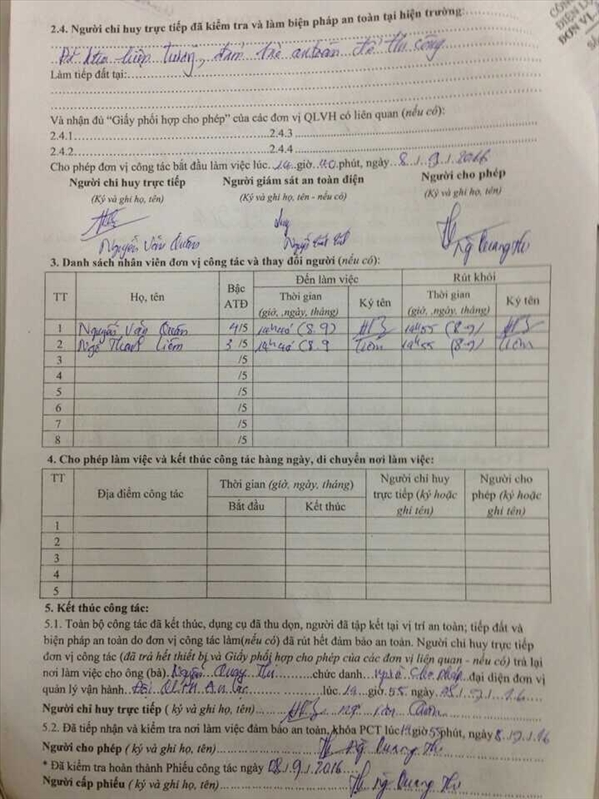 2.4. Người chỉ huy trực tiếp đã kiểm tra và làm biện pháp an toàn tại hiện trường:
Đã kiểm tra hiện trường, đảm bảo an toàn để thi công
Làm tiếp đất tại:
Và nhận đủ "Giấy phối hợp cho phép" của các đơn vị QLVH có liên quan (nếu có):
2.4.1 2.4.3
2.4.2 2.4.4
Cho phép đơn vị công tác bắt đầu làm việc lúc giờ phút, ngày 8/9/2016
Người chỉ huy trực tiếp Người giám sát an toàn điện Người cho phép
(Ký và ghi họ, tên) (Ký và ghi họ, tên - nếu có) (Ký và ghi họ, tên)
Nguyễn Văn Ng Quang
3. Danh sách nhân viên đơn vị công tác và thay đổi người (nếu có):
TT Họ, tên Bậc ATĐ Đến làm việc Rút khỏi
Thời gian (giờ, ,ngày, tháng) Ký tên Thời gian (giờ, ,ngày, tháng) Ký tên
1 Nguyễn Văn 4/5 (8.9) (8-9)
2 Ngô Thanh Liêm 3/5 (8.9 Liêm (8-9) Liêm
3 /5
4 /5
5 /5
6 /5
7 /5
8 /5
4. Cho phép làm việc và kết thúc công tác hàng ngày, di chuyển nơi làm việc:
TT Địa điểm công tác Thời gian (giờ, ngày, tháng) Người chỉ huy trực tiếp (ký hoặc ghi tên) Người cho phép (ký hoặc ghi tên)
Bắt đầu Kết thúc
1
2
3
4
5
5. Kết thúc công tác:
5.1. Toàn bộ công tác đã kết thúc, dụng cụ đã thu dọn, người đã tập kết tại vị trí an toàn; tiếp đất và
biện pháp an toàn do đơn vị công tác làm(nếu có) đã rút hết đảm bảo an toàn. Người chỉ huy trực tiếp
đơn vị công tác (đã trả hết thiết bị và Giấy phối hợp cho phép của các đơn vị liên quan - nếu có) trả lại
nơi làm việc cho ông (bà) Nguyễn Quang chức danh người cho phép đại diện đơn vị
quản lý vận hành Đội QLVH lúc giờ 55 ngày
Người chỉ huy trực tiếp ( ký và ghi họ, tên) Văn
5.2. Đã tiếp nhận và kiểm tra nơi làm việc đảm bảo an toàn, khóa PCT lúc giờ phút, ngày 8/9/16
Người cho phép ( ký và ghi họ, tên) Ng Quang
* Đã kiểm tra hoàn thành Phiếu công tác ngày 08/9/2016
Người cấp phiếu ( ký và ghi họ, tên) Ng Quang